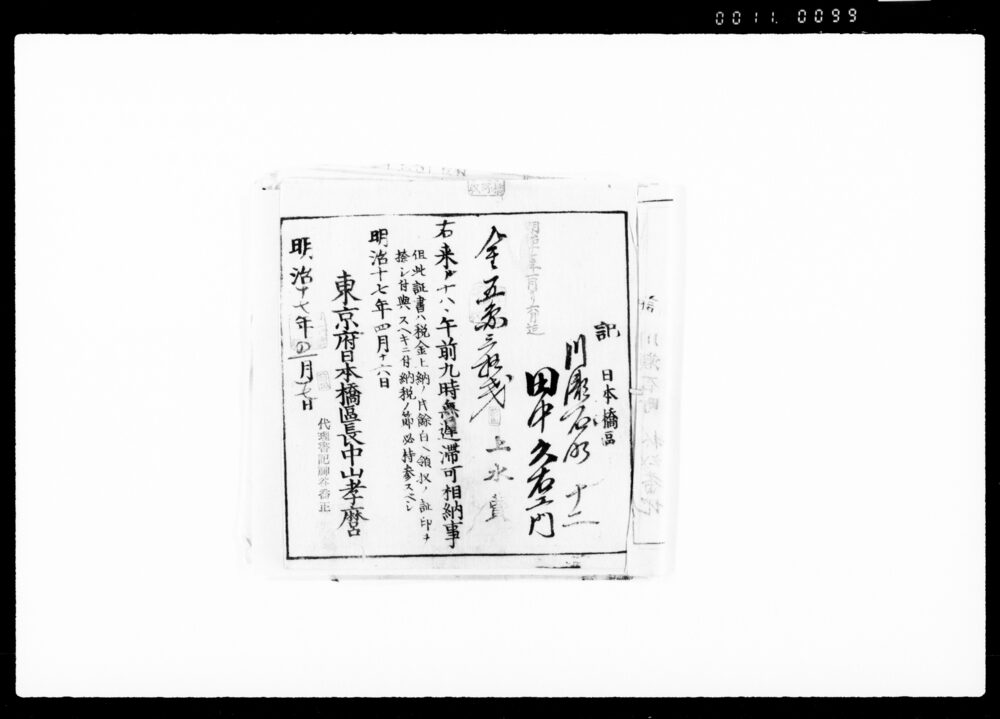 0011.0099
記
日本橋區
川瀬石町 十二
田中久右エ門
金五円三拾銭
上水費
右来ル十八日午前九時無遅滞可相納事
但此証書ハ税金上納ノ片餘白ヘ領収ノ証印ヲ
捺シ付與スヘキニ付納税ノ節必持参スヘシ
明治十七年四月十六日
東京府日本橋區長中山孝麿
代理書記
明治十七年四月
川瀬石町
番地